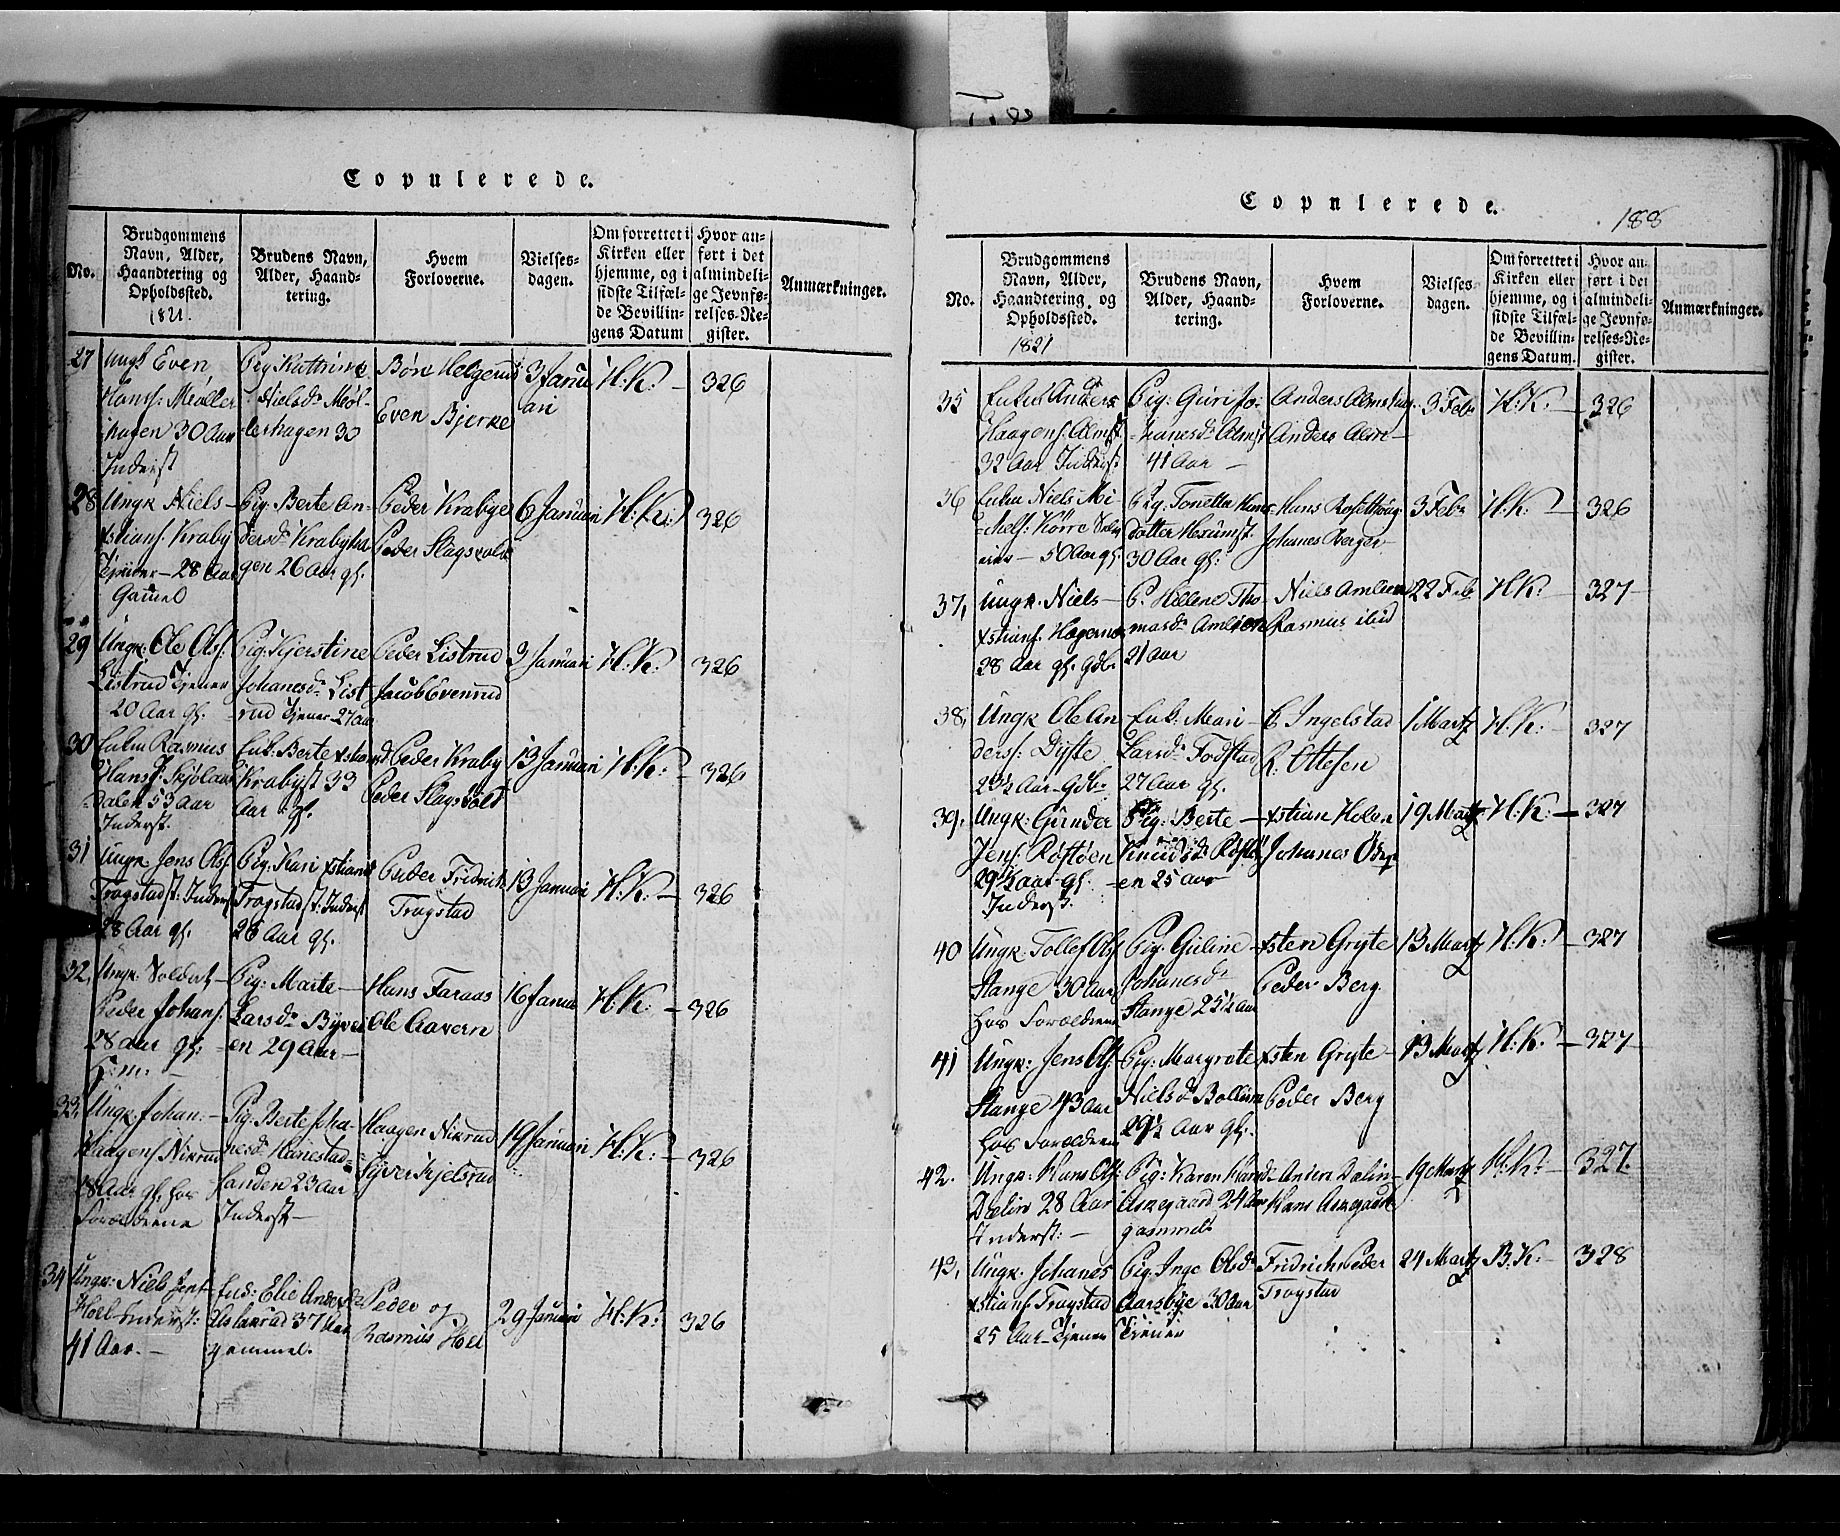 Copulerede.
No.
Brudgommens
Navn, Alder,
Haandtering og
Opholdssted.
1821.
Brudens Navn,
Alder, Haand-
tering.
Hvem
Forloverne.
Vielses-
dagen.
Om forrettet i
Kirken eller
hjemme, og i
sidste Tilfæl-
de Bevillin-
gens Datum
Hvor an-
ført i det
almindeli-
ge Jevnfø-
relses-Re-
gister.
Anmærkninger.
27
Ungk Even
Hans: Møller
hagen 30 Aar
Inderst
Pig Kattrine
Nielsdr Møl-
lerhagen 30
Børe Helgerud
Even Bjerke
3 Janu
ari
H:K: -
326
28
Ungk Niels -
xstians: Kraby
Tjener - 28 Aar
Gamel
Pig: Berte An-
dersdr Krabyha
gen 26 Aar gl.
Peder Krabye
Peder Slagsvold
6 Januari
H:K:
326
29
Ungk: Ole Ols:
Listrud Tjener
20 Aar gl.
Pig: Kjerstine
Johanesdr List
rud Tjener 27 aar
Peder Listrud
Jacob Evenrud
3 Januari
H:K:
326
30
Enkm Rasmus
Hans: Skjølaas
dalen 53 Aar
Inderst.
Enk: Berte xstiansd
Krabyst 33
Aar gl.
Peder Kraby
Peder Slagsvold
13 Januari
H:K: -
326
31
Ungk: Jens Ols:
Tragstadst: Inderst
28 Aar gl.
Pig: Kari xstiansd
Tragstadst: Inderst
26 Aar gl.
Peder Fridrich
Tragstad
13 Januari
H:K: -
326
32,
Ungk: Soldat -
Peder Johans:
28 aar gl:
Pig: Marte -
Larsdr Byver
en 29 Aar -
Hans Faraas
Ole Aavern
16 Janua
H:K: -
326
33,
Ungk: Johan: -
Haagens Nikrud
28 Aar gl. hos
Forældrene
Pig: Berte Joha-
nesdr Hanestad-
hauden 23 Aar
Inderst -
Haagen Nikrud
Syver Kjelsrud
19 Januari
H:K: -
326
34
Ungk: Niels Jens
Hoel Inderst:
41 Aar. -
Enk: Elie Andersdr
Aslakrud 37 Aar
gammel.
Peder og
Rasmus Hoel
29 Januari
H:K:
326
Copulerede.
188
No.
Brudgommens
Navn, Alder,
Haandtering og
Opholdssted.
1821
Brudens Navn,
Alder, Haand-
tering.
Hvem
Forloverne.
Vielses-
dagen.
Om forrettet i
Kirken eller
hjemme, og i
sidste Tilfæl-
de Bevillin-
gens Datum.
Hvor an-
ført i det
almindeli-
ge Jevnfø-
relses-Re-
gister.
Anmærkninger.
35
Enkm Anders
Haagens: Almst
32 Aar Inderst:
Pig: Guri Jo-
hanesdr Almst
41 Aar -
Anders Almshag.
Anders Alm -
3 Febr
H:K: -
326
36
Enkm Niels Mi
chels: Kørre
50 Aar gl.
Pig: Tonetta Hans
dotter Hexumst.
30 Aar gl:
Hans Rosethaug
Johanes Berger
3 Febr
H:K: -
326
37,
Ungk: Niels -
xstians: Hagerne
28 Aar gl. Gdb:
P: Hellene Tho-
masdr Amlien
21 Aar
Niels Amlien
Rasmus ibid
22 Feb
H:K: -
327
38,
Ungk Ole An
ders: Dyste
23½ Aar Gdb:
Enk: Mari -
Larsdr Fodstad
27 Aar gl.
C. Ingelstad
R: Ottesen
1 Martz
H:K: -
327
39,
Ungk: Gunder
Jens: Røstøen
29½ aar gl.
Inderst.
Pig: Berte -
Knudsdr Røstø
en 25 aar
xstian Holen
Johanes
19 Martz
H:K: -
327
40
Ungk: Tollef Ols
Stange 30 Aar
hos Forældrene
Pig: Guline
Johanesdr
Stange 25½ Aar
xsten Gryte
Peder Berg.
13 Martz
H:K: -
327
41
Ungk: Jens Ols:
Stange 43 Aar
hos Forældrene
Pig: Margrete
Nielsdr Bollum
29½ Aar gl:
xsten Gryte -
Peder Berg
13 Martz
H:K: -
327
42.
Ungk: Hans Ols
Dælin 28 Aar
Inderst: -
Pig: Karen Hansd
Askegaard 24 Aar
gammel
Anders Dælin -
Hans Askegaard
19 Martz
H:K: -
327.
43,
Ungk: Johanes
xstians: Tragstad
25 Aar - Tjener
Pig: Inge Olsdr
Aarsbye 30 Aar
Tjener
Fridrich Peder
Tragstad
24 Martz
B:K: -
328